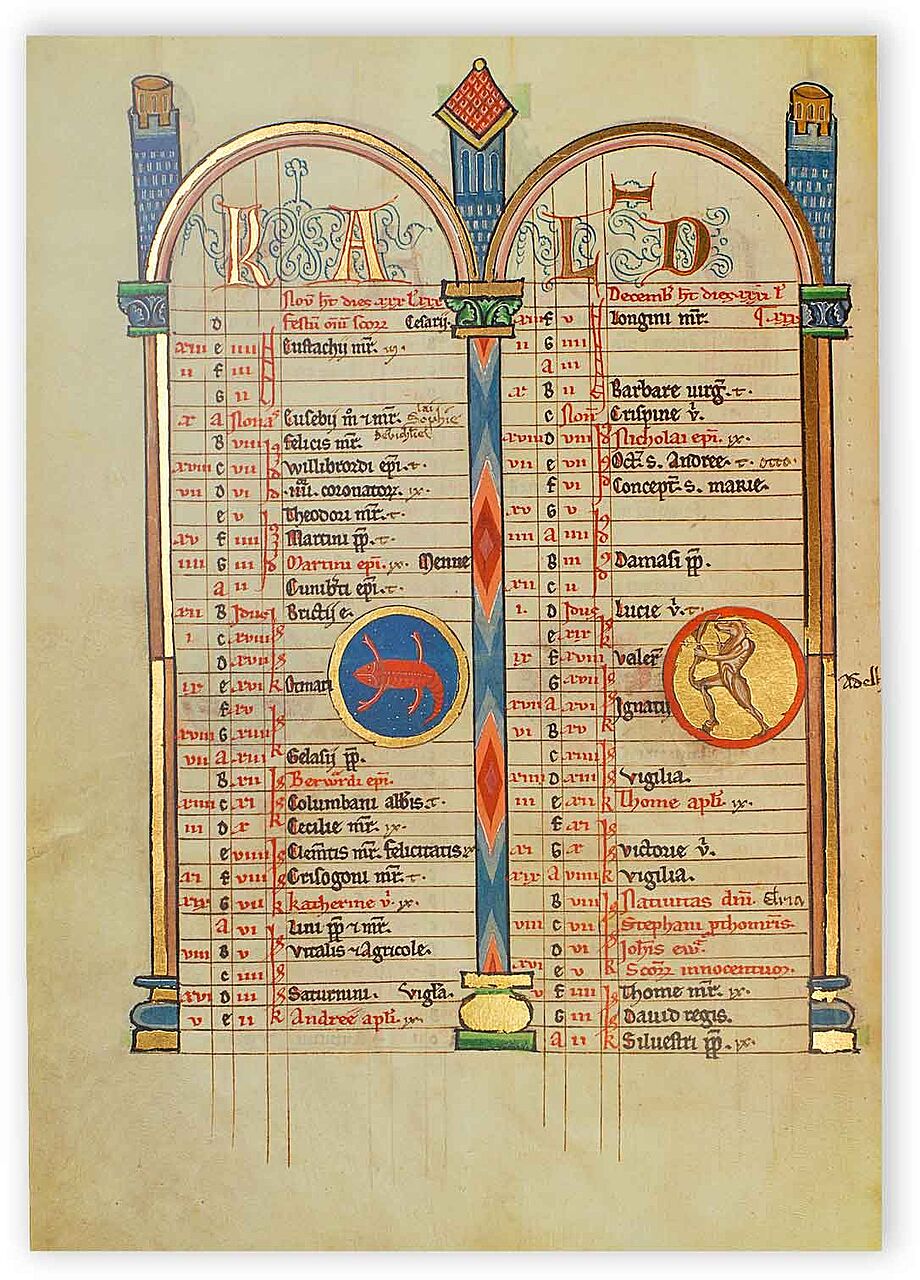 KA
Nov ht dies xxx l xxx
D festū oīu scorʒ Cesarij
xiii e iiii Eustachij mr̄.
ii f iii
G ii
x a Nonas Eusebij m̄ ⁊ mr̄. Sophie
B viii felicis mr̄.
xviii c vii willibrordi epī. t.
vii D vi iiii. coronatorʒ. ix.
e v Theodori mr̄. t.
xv f iiii Martini pp̄. t.
iiii G iii Martini epī. ix. Menne
a ii Cunibti epī. t.
xii B Idus Brictij e.
i c xviii
D xvii
ix e xvi k Otmari
f xv
xviii G xiiii
vii a xiii k Gelasij pp̄.
B xii Berwardi epī.
xiiii c xi k Columbani abbis t.
iii D x k Cecilie mr̄. ix.
e viiii Clemtis mr̄. felicitatis
xi f viii Crisogoni mr̄. t.
xix G vii k katherine v̄. ix.
a vi Lini pp̄ ⁊ mr̄.
viii B v Vitalis ⁊ Agricole.
c iiii
xvi D iii Saturnini. Vigła.
v e ii k Andree apłi. ix.
LD
Decemb ht dies xxxi l
xiii f v Longini mr̄.
ii G iiii
a iii
x B ii Barbare uirḡ. t.
c Noñ Crispine v̄.
xviii D viii Nicholai epī. ix.
vii e vii Oct̄. s. Andree. t.
f vi Concept̄. s. marie.
xv G v
iiii a iiii
B iii Damasi pp̄.
xii c ii
i. D Idus Lucie v̄. t.
e xix k
ix f xviii valer̄
G xvii
xvii a xvi Ignatij
vi B xv
c xiiii
xiiii D xiii vigilia.
iii e xii k Thome apłi. ix.
f xi
xi G x victorie v̄.
xix a viiii k vigilia.
B viii Natiuitas dn̄i.
viii c vii Stephani pthomr̄is.
D vi Johis ew̄.
xvi e v k Scorʒ innocentuorʒ.
v f iiii Thome mr̄. ix.
G iii Dauid regis.
a ii k Siluestri pp̄. ix.